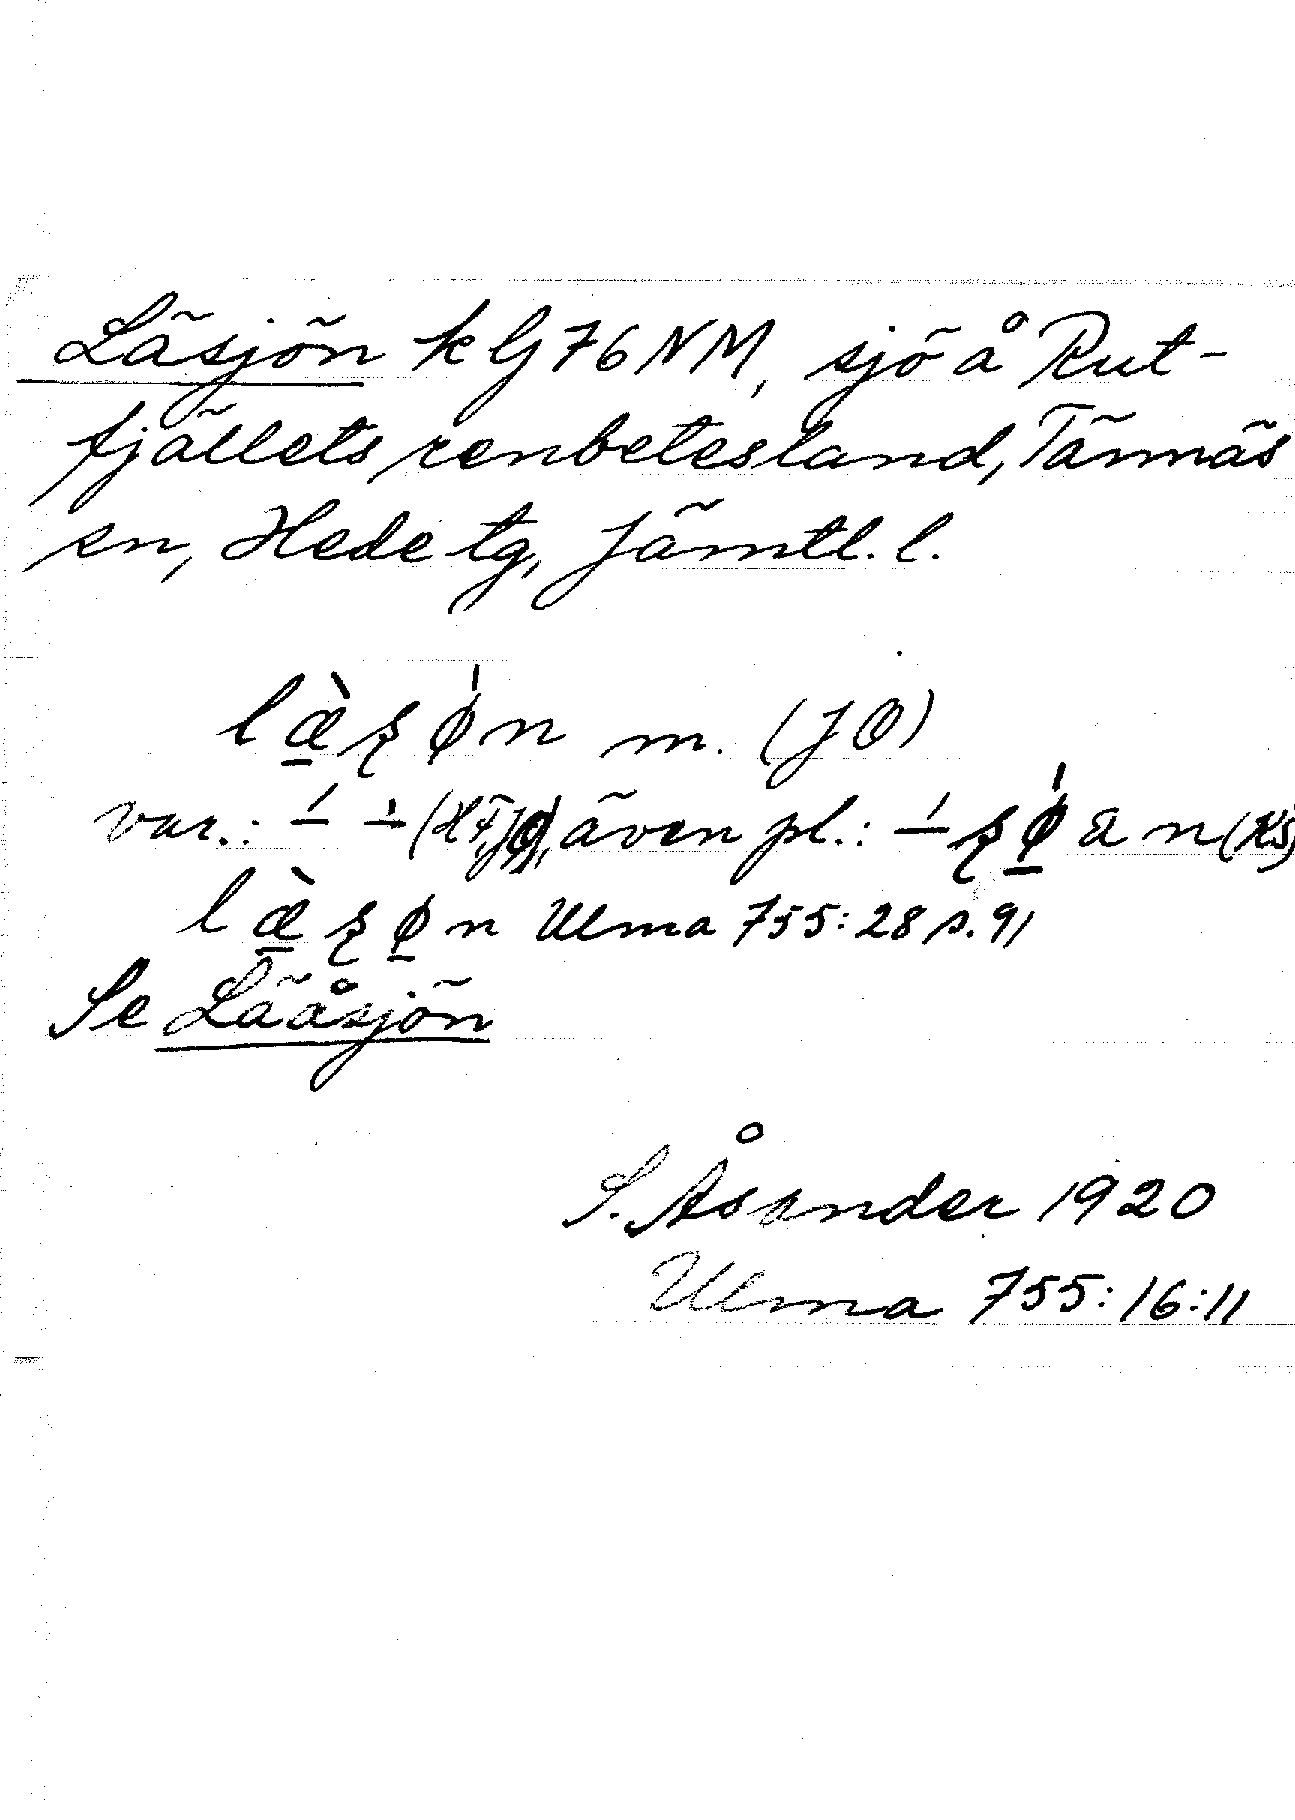 Läsjön k G 76 NM, sjö å Rut-
fjällets renbetesland, Tännäs
sn, Hede tg, Jämtl. l.
læ̀ʂǿn m. (JO)
var.: även pl.:
læ̀ʂøn Ulma 755:28 s. 91
Se Lääsjön
S. Åsander 1920
Ulma 755:16:11